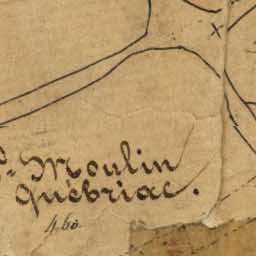 Moulin
Québriac.
460